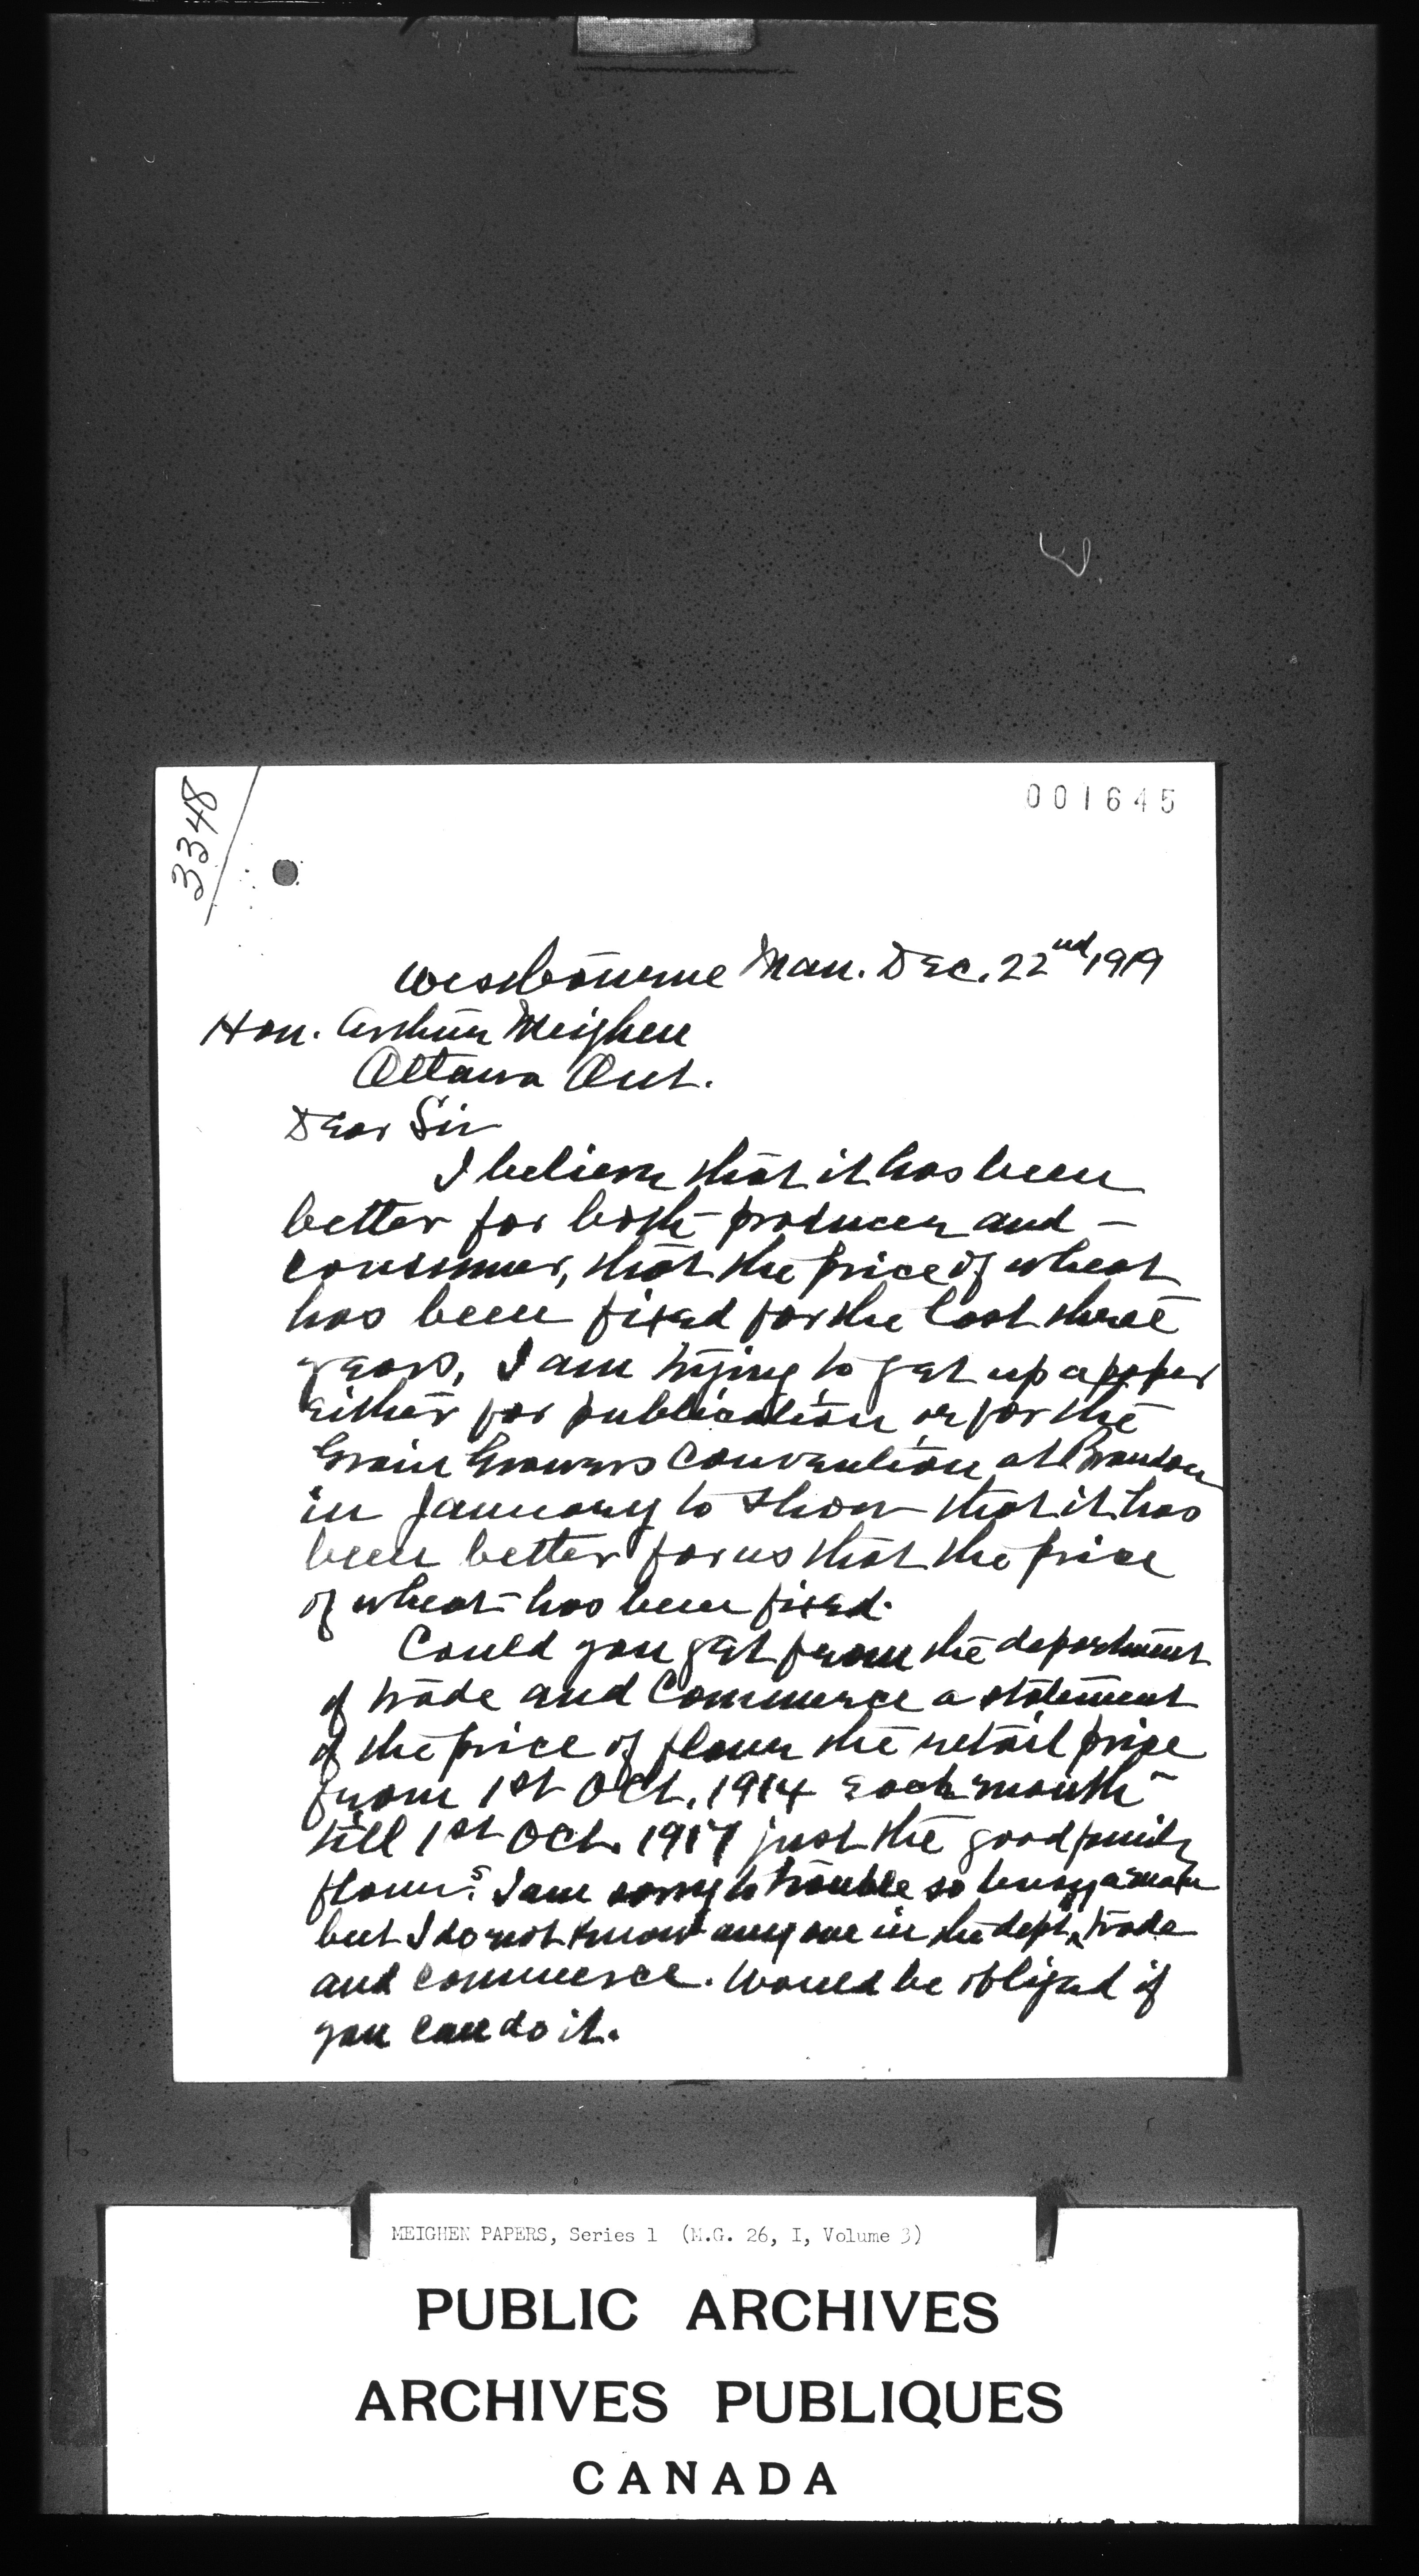 3348
001645
Westbourne Man. Dec. 22nd 1919
Hon. Arthur Meighen
Ottawa Ont.
Dear Sir
I believe that it has been
better for both producer and -
consumer, that the price of wheat
has been fixed for the last three
years, I am trying to get up a paper
either for publication or for the
Grain Growers Convention at Brandon
in January to show that it has
been better for us that the price
of wheat has been fixed.
Could you get from the department
of trade and Commerce a statement
of the price of flour the retail price
from 1st Oct. 1914 each month
till 1st Oct. 1917 just the good family
flour? I am sorry to trouble so busy a man
but I do not know any one in the dept. trade
and commerce. Would be obliged if
you can do it.
MEIGHEN PAPERS, Series 1 (M.G. 26, I, Volume 3)
PUBLIC ARCHIVES
ARCHIVES PUBLIQUES
CANADA